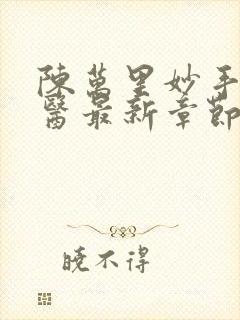 陳萬里妙手
醫最新章節
曉不得